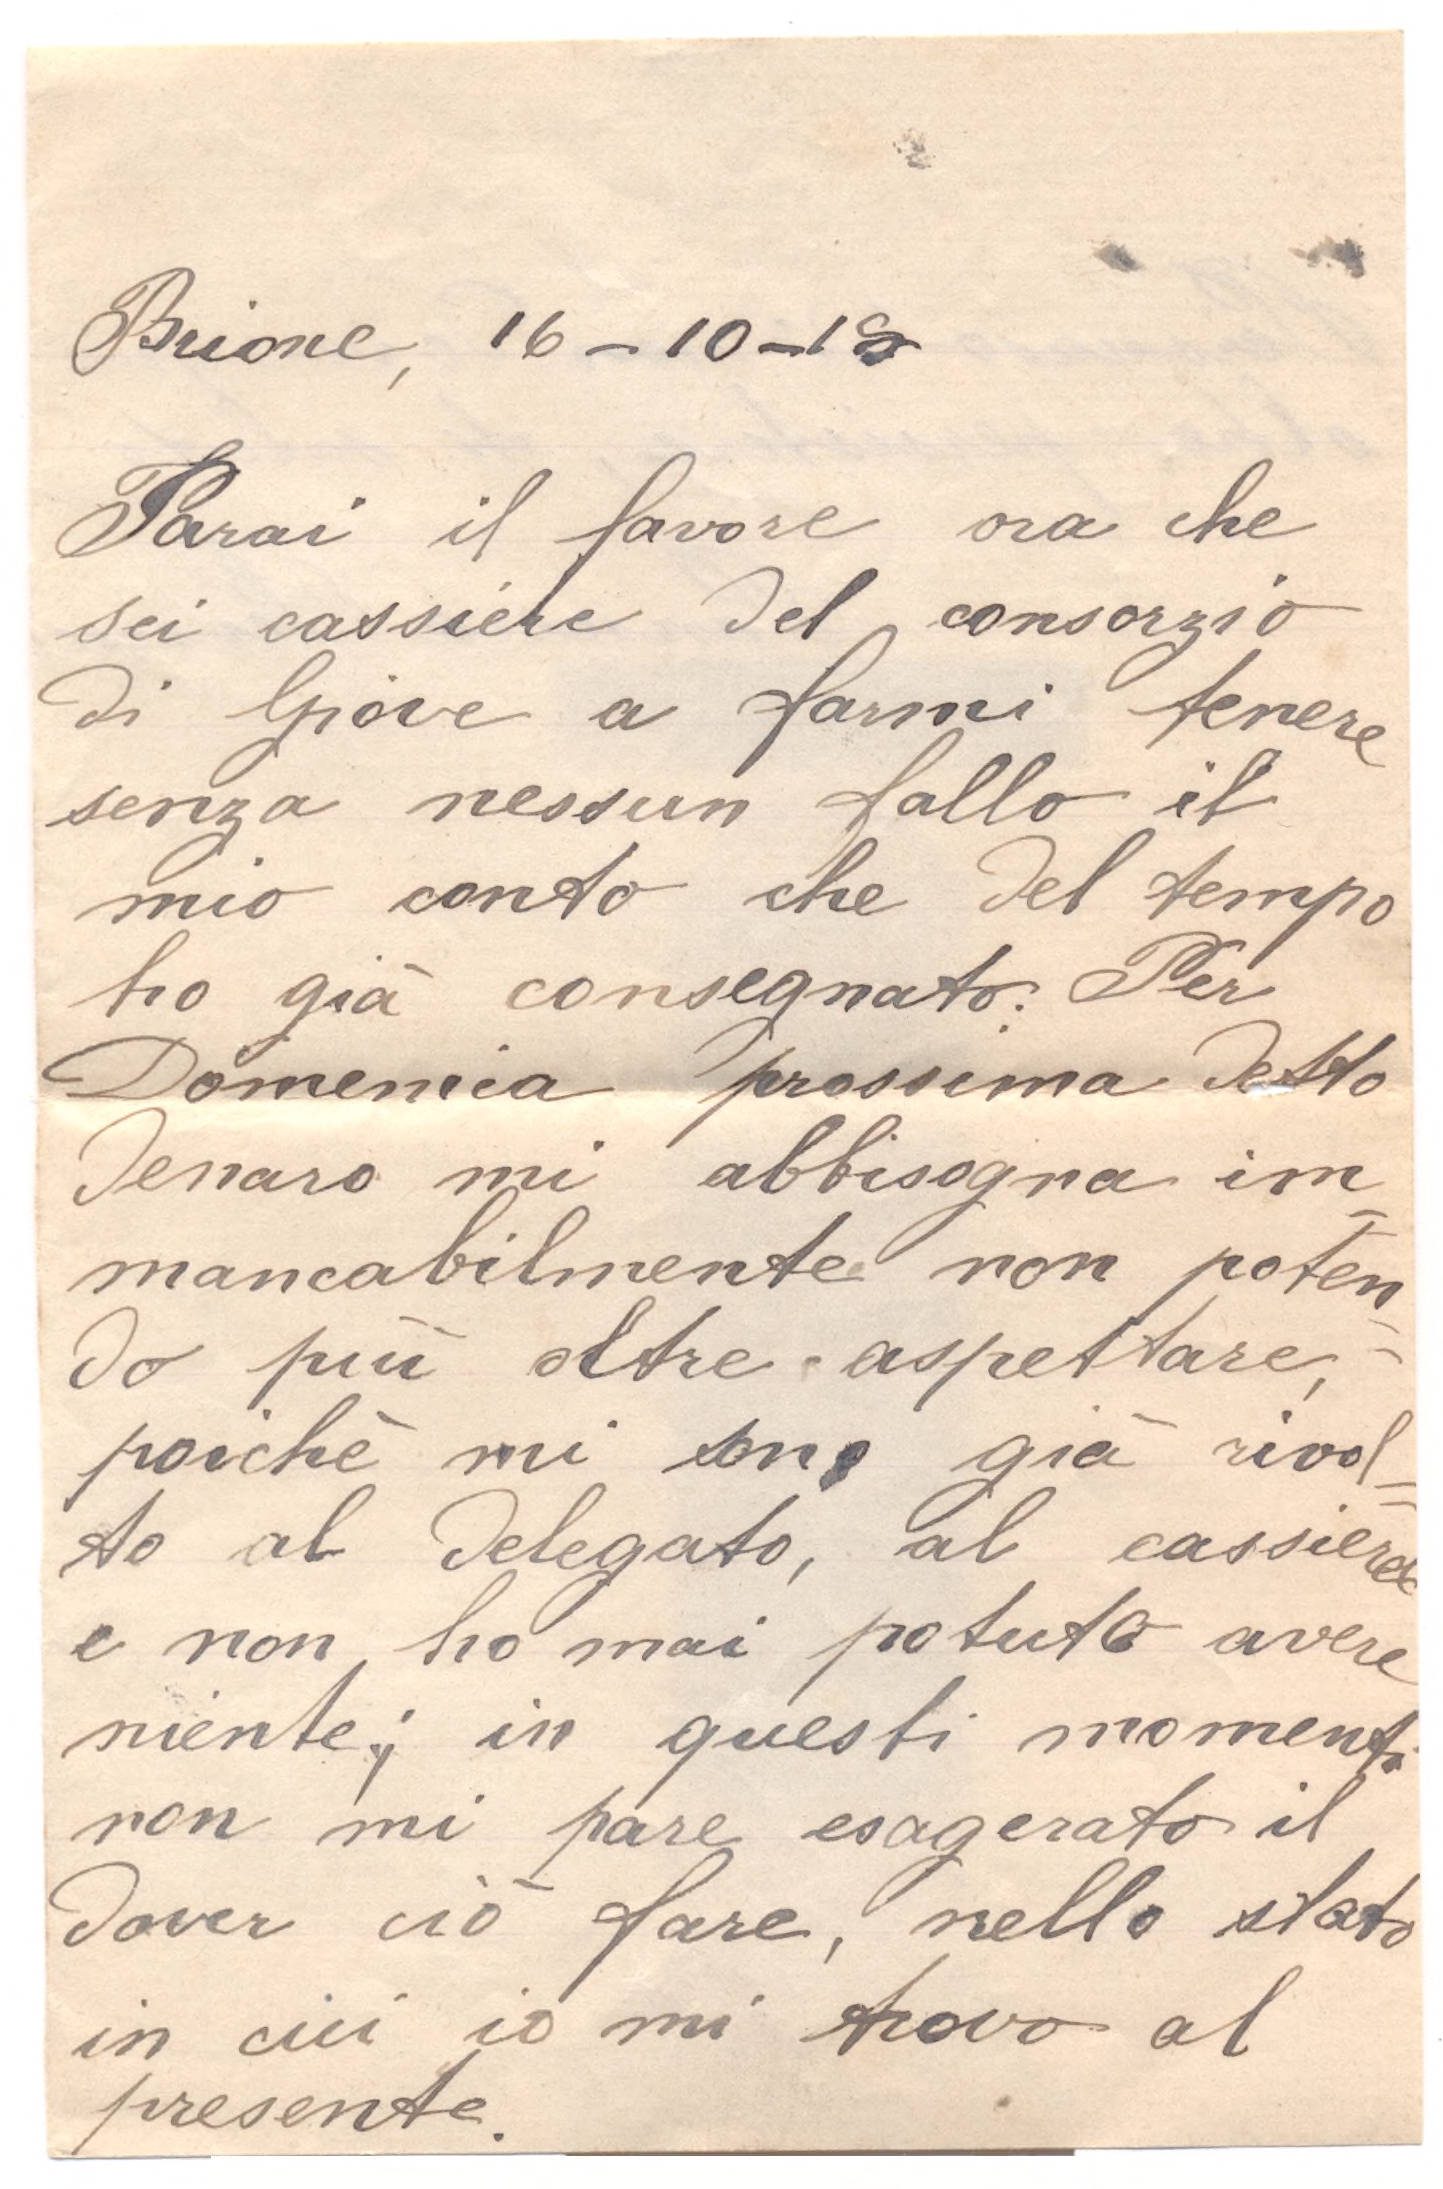 Brione, 16-10-18
Farai il favore ora che
sei cassiere del consorzio
di Giove a farmi tenere
senza nessun fallo il
mio conto che del tempo
ho già consegnato. Per
Domenica prossima detto
denaro mi abbisogna im=
mancabilmente non poten=
do più oltre aspettare,
poichè mi sono già rivol=
to al delegato, al cassiere
e non ho mai potuto avere
niente; in questi momenti
non mi pare esagerato il
dover ciò fare, nello stato
in cui io mi trovo al
presente.